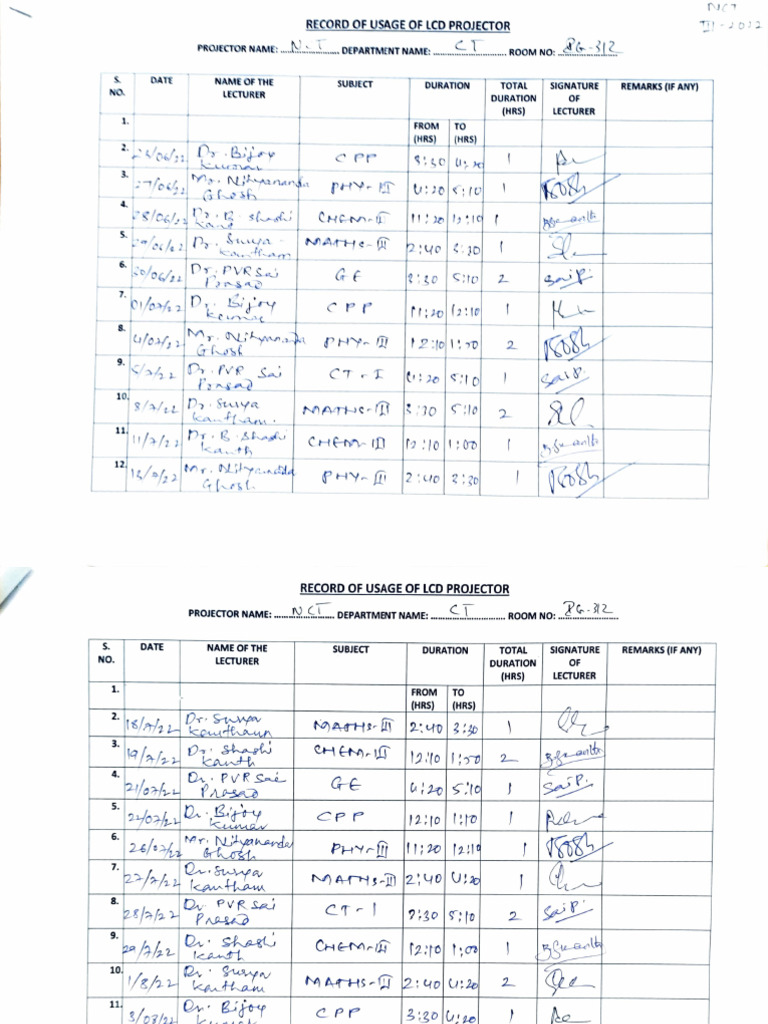 NCT
III-2022
RECORD OF USAGE OF LCD PROJECTOR
PROJECTOR NAME: NCT DEPARTMENT NAME: CT ROOM NO: PG-312
S. NO. DATE NAME OF THE LECTURER SUBJECT DURATION TOTAL DURATION (HRS) SIGNATURE OF LECTURER REMARKS (IF ANY)
1. FROM (HRS) TO (HRS)
2. Dr. Bijoy Kumar CPP 3:30 4:20 1
3. 27/06/22 Mr. Nityananda Ghosh PHY-III 4:20 5:10 1
4. 28/06/22 Dr. B. Shashi CHEM-III 11:20 12:10 1
5. 29/06/22 Dr. Surya Kantham MATHS-III 2:40 3:30 1
6. 30/06/22 Dr. PVR Sai Prasad GE 3:30 5:10 2 SaiP.
7. 01/07/22 Dr. Bijoy Kumar CPP 11:20 12:10 1
8. 4/07/22 Mr. Nityananda Ghosh PHY-III 12:10 1:50 2
9. 5/7/22 Dr. PVR Sai Prasad CT-I 4:20 5:10 1 SaiP.
10. 8/7/22 Dr. Surya Kantham MATHS-III 3:30 5:10 2
11. 11/7/22 Dr. B. Shashi Kanth CHEM-III 12:10 1:00 1
12. Mr. Nityananda Ghosh PHY-III 2:40 3:30 1
RECORD OF USAGE OF LCD PROJECTOR
PROJECTOR NAME: NCT DEPARTMENT NAME: CT ROOM NO: PG-312
S. NO. DATE NAME OF THE LECTURER SUBJECT DURATION TOTAL DURATION (HRS) SIGNATURE OF LECTURER REMARKS (IF ANY)
1. FROM (HRS) TO (HRS)
2. 18/7/22 Dr. Surya Kantham MATHS-III 2:40 3:30 1
3. 19/7/22 Dr. Shashi Kanth CHEM-III 12:10 1:50 2
4. 21/07/22 Dr. PVR Sai Prasad GE 4:20 5:10 1 SaiP.
5. 22/07/22 Dr. Bijoy Kumar CPP 12:10 1:10 1
6. 26/07/22 Mr. Nityananda Ghosh PHY-III 11:20 12:10 1
7. 27/7/22 Dr. Surya Kantham MATHS-III 2:40 4:20 1
8. 28/7/22 Dr. PVR Sai Prasad CT-I 3:30 5:10 2 SaiP.
9. 29/7/22 Dr. Shashi Kanth CHEM-III 12:10 1:00 1
10. 1/8/22 Dr. Surya Kantham MATHS-III 2:40 4:20 2
11. 3/08/22 Dr. Bijoy Kumar CPP 3:30 4:20 1